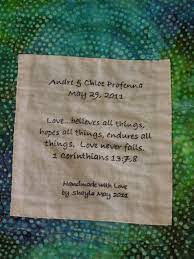 Andre & Chloe Profenna
May 29, 2011
Love...believes all things,
hopes all things, endures all
things. Love never fails.
1 Corinthians 13:7,8
Handmade with Love
by Shayla May 2011